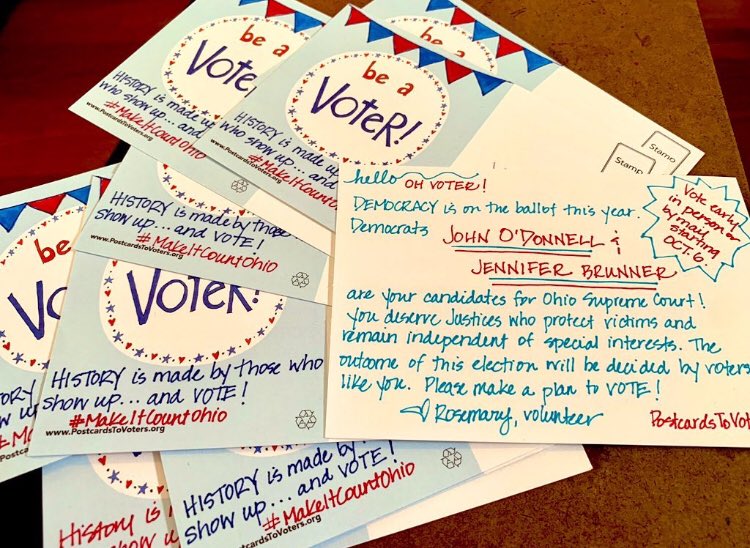 be a
VOTER!
HISTORY is made
who show up... and
www.PostcardsToVoters.org
#MakeItCountOhio
be a
be a
VOTER!
HISTORY is made by
who show up... and
#MakeItCountOhio
Stamp
Stamp
HISTORY is made by those
show up... and VOTE!
#MakeItCountOhio
be a
VOTER!
HISTORY is made by those who
show up... and VOTE!
#MakeItCountOhio
www.PostcardsToVoters.org
be a
HISTORY
who
#Ma
HISTORY is made by
show up... and VOTE!
#MakeItCountOhio
www.PostcardsToVoters.org
HISTORY is
hello OH VOTER!
DEMOCRACY is on the ballot this year.
Democrats JOHN O'DONNELL &
JENNIFER BRUNNER
are your candidates for Ohio Supreme Court!
You deserve Justices who protect victims and
remain independent of special interests. The
outcome of this election will be decided by voters
like you. Please make a plan to VOTE!
Rosemary, volunteer
PostcardsToVot
Vote early
in person or
by mail
starting
OCT. 6!